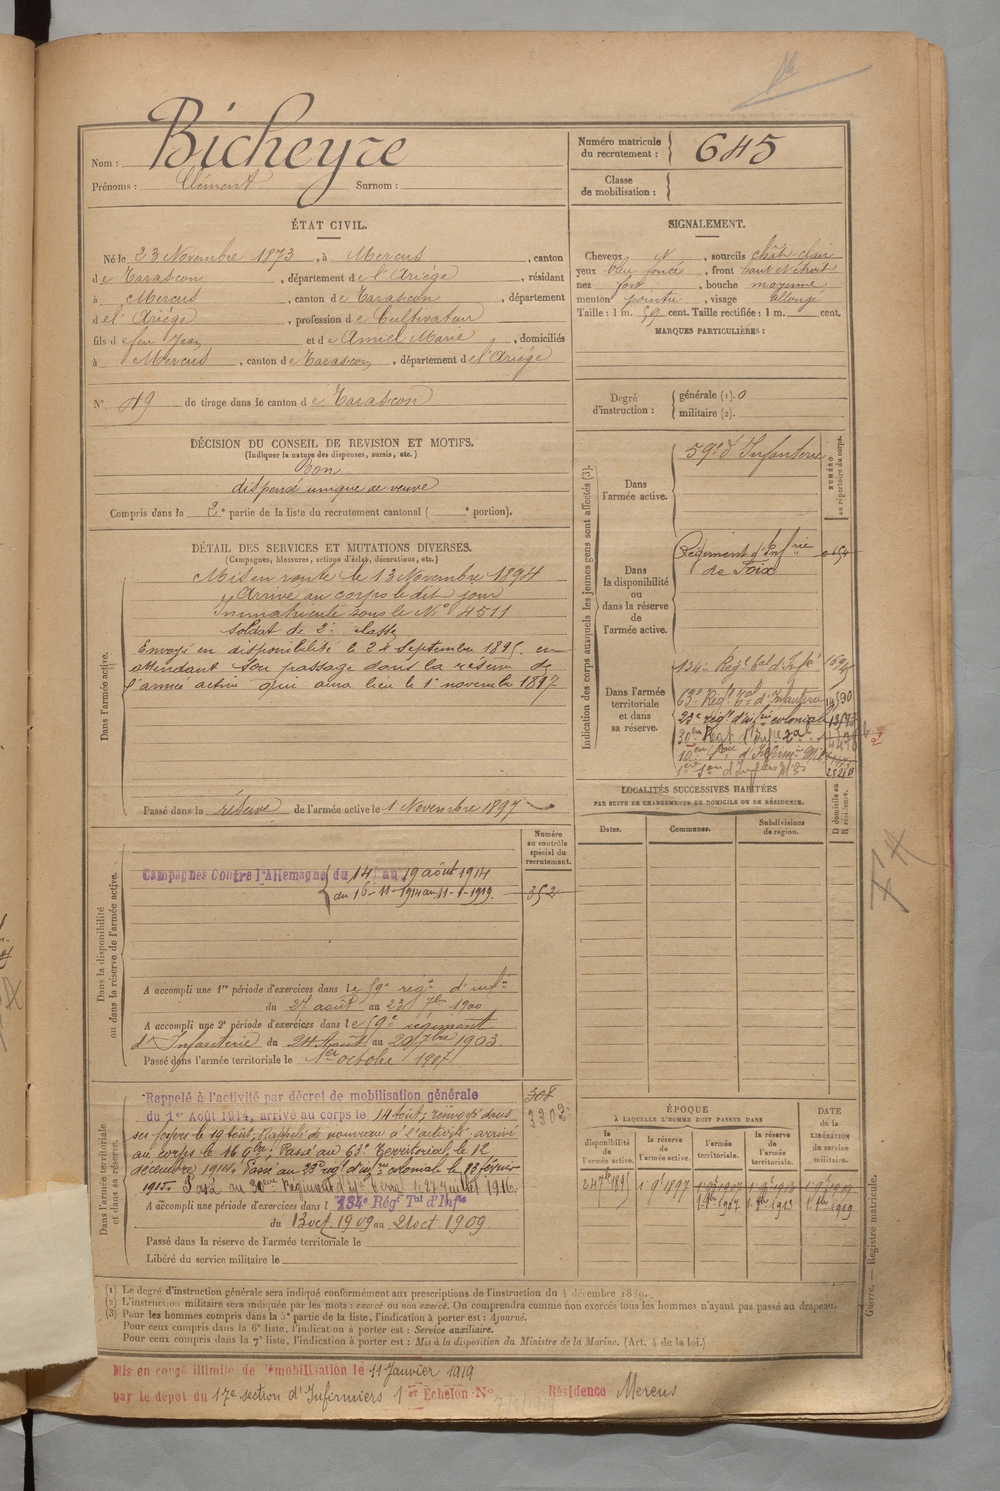 Nom : Bicheyre
Prénoms : Clément Surnom :
Numéro matricule du recrutement : 645
Classe de mobilisation :
ÉTAT CIVIL.
Né le 23 Novembre 1873, à Mercus, canton
de Tarascon, département de l'Ariège, résidant
à Mercus, canton de Tarascon, département
de l'Ariège, profession de Cultivateur
fils de feu Jean et de Amiel Marie, domiciliés
à Mercus, canton de Tarascon, département de l'Ariège
N° 49 de tirage dans le canton de Tarascon
DÉCISION DU CONSEIL DE REVISION ET MOTIFS.
(Indiquer la nature des dispenses, sursis, etc.)
Bon
dispensé unique de veuve
Compris dans la 2e partie de la liste du recrutement cantonal ( e portion).
SIGNALEMENT.
Cheveux N, sourcils chât clair
yeux bleu foncé, front haut et étroit
nez fort, bouche moyenne,
menton pointu, visage allongé
Taille : 1 m. 59 cent. Taille rectifiée : 1 m. cent.
MARQUES PARTICULIÈRES :
Degré d'instruction :
générale (1). 0
militaire (2).
DÉTAIL DES SERVICES ET MUTATIONS DIVERSES.
(Campagnes, blessures, actions d'éclat, décorations, etc.)
Dans l'armée active.
Mis en route le 13 Novembre 1894
Arrivé au corps le dit jour
Immatriculé sous le N° 4511
Soldat de 2e classe
Envoyé en disponibilité le 24 Septembre 1895 en
attendant son passage dans la réserve de
l'armée active qui aura lieu le 1er novembre 1897
Passé dans la réserve de l'armée active le 1 Novembre 1897
Indication des corps auxquels les jeunes gens sont affectés (3).
NUMÉRO au répertoire du corps.
Dans l'armée active.
59e d'Infanterie
Dans la disponibilité ou dans la réserve de l'armée active.
Régiment d'Infrie
de Foix
Dans l'armée territoriale et dans sa réserve.
134e Régt tal d'Infie
63e Régt tal d'Infanterie 14590
23e régt d'infrie coloniale
LOCALITÉS SUCCESSIVES HABITÉES
PAR SUITE DE CHANGEMENTS DE DOMICILE OU DE RÉSIDENCE.
Dates. Communes. Subdivisions de région. D domicile ou R résidence.
Numéro au contrôle spécial du recrutement.
Dans la disponibilité ou dans la réserve de l'armée active.
Campagnes Contre l'Allemagne du 14 au 19 août 1914
du 16-11-1914 au 11-1-1919. 352
A accompli une 1re période d'exercices dans le 59e régt d'infie
du 27 août au 23 7bre 1900
A accompli une 2e période d'exercices dans le 59e régiment
d'Infanterie du 24 Août au 20 7bre 1903.
Passé dans l'armée territoriale le 1er octobre 1907
Dans l'armée territoriale et dans sa réserve.
Rappelé à l'activité par décret de mobilisation générale 308
du 1er Août 1914, arrivé au corps le 14 août; renvoyé dans 3302
ses foyers le 19 août; Rappelé de nouveau à l'activité arrivé
au corps le 16 9bre; Passé au 63e Territorial, le 12
décembre 1914. Passé au 23e régt d'infrie coloniale le 23 février
1915. Passé au 30ème Régiment d'Infie Terral le 27 Juillet 1916.
A accompli une période d'exercices dans l 134e Régt Tal d'Infie
du 13 oct 1909 au 21 oct 1909.
Passé dans la réserve de l'armée territoriale le
Libéré du service militaire le
ÉPOQUE
À LAQUELLE L'HOMME DOIT PASSER DANS
DATE de la LIBÉRATION du service militaire.
la disponibilité de l'armée active. la réserve de l'armée active. l'armée territoriale. la réserve de l'armée territoriale.
24 7bre 1895 1 9bre 1897 1 9bre 1907 1 9bre 1913 1 9bre 1919
1 8bre 1907 1 8bre 1913 1 8bre 1919
Guerre. — Registre matricule.
(1) Le degré d'instruction générale sera indiqué conformément aux prescriptions de l'instruction du 4 décembre 1889.
(2) L'instruction militaire sera indiquée par les mots : exercé ou non exercé. On comprendra comme non exercés tous les hommes n'ayant pas passé au drapeau.
(3) Pour les hommes compris dans la 5e partie de la liste, l'indication à porter est : Ajourné.
Pour ceux compris dans la 6e liste, l'indication à porter est : Service auxiliaire.
Pour ceux compris dans la 7e liste, l'indication à porter est : Mis à la disposition du Ministre de la Marine. (Art. 4 de la loi.)
Mis en congé illimité de démobilisation le 11 Janvier 1919
par le dépot du 17e section d'Infirmiers 1er Echelon N° Résidence Mercus